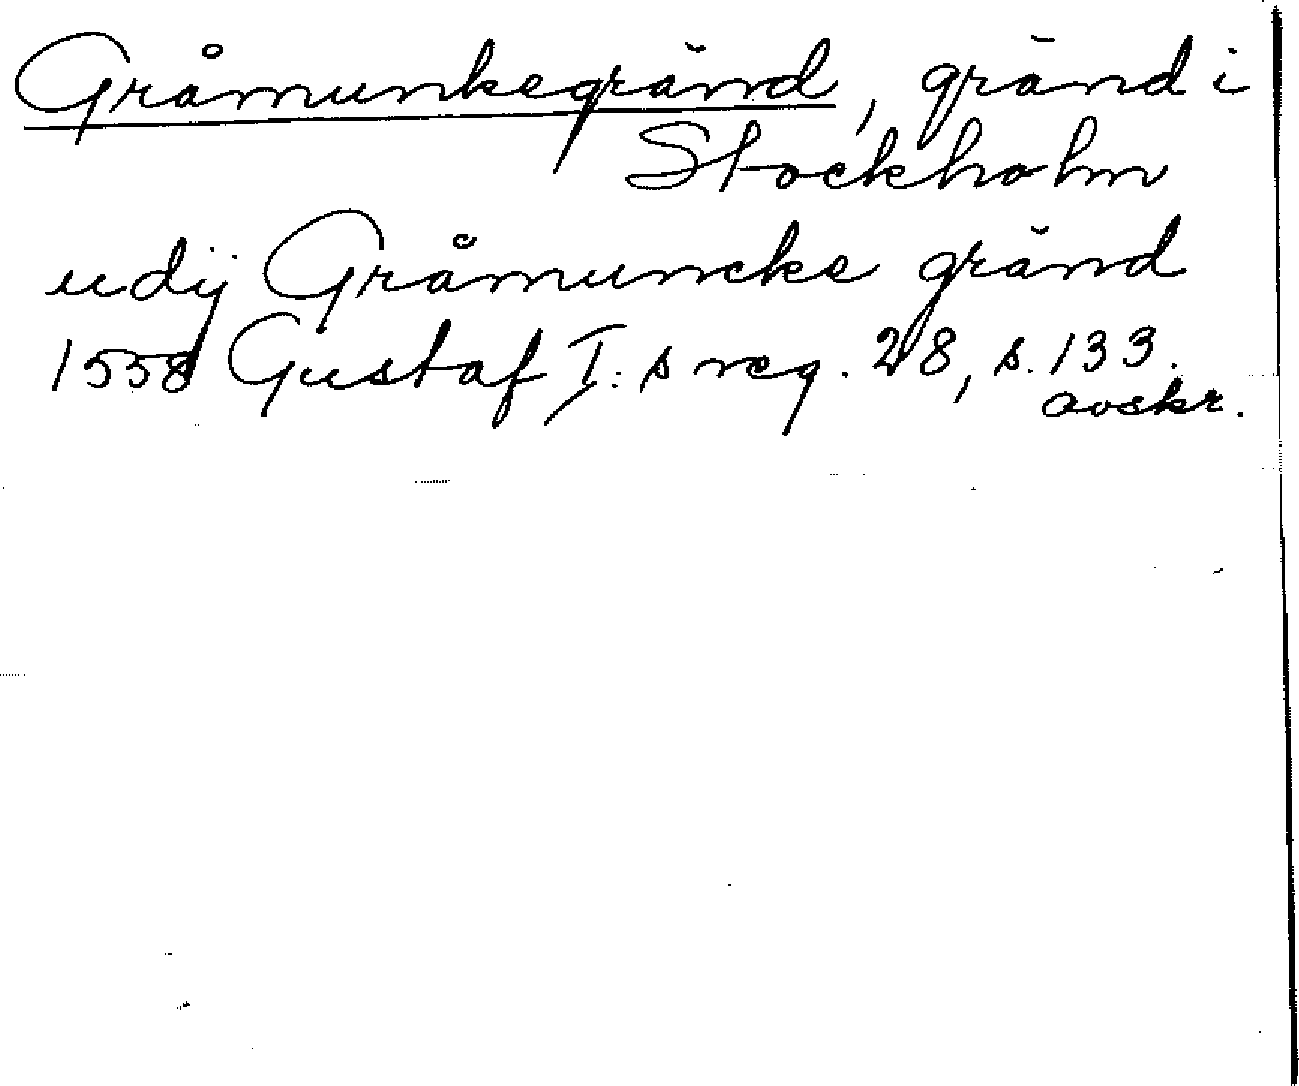 Gråmunkegränd, gränd i
Stockholm
udij Gråmuncke gränd
1558 Gustaf I:s reg. 28, s. 133.
avskr.